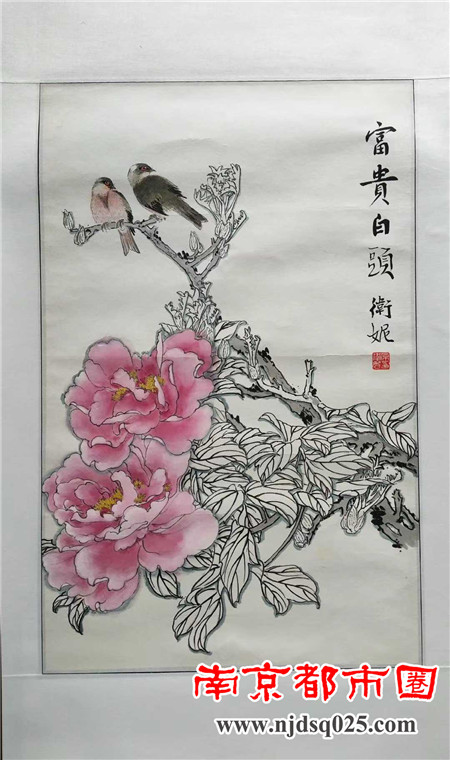 富貴白頭
衛妮
南京都市圈
www.njdsq025.com